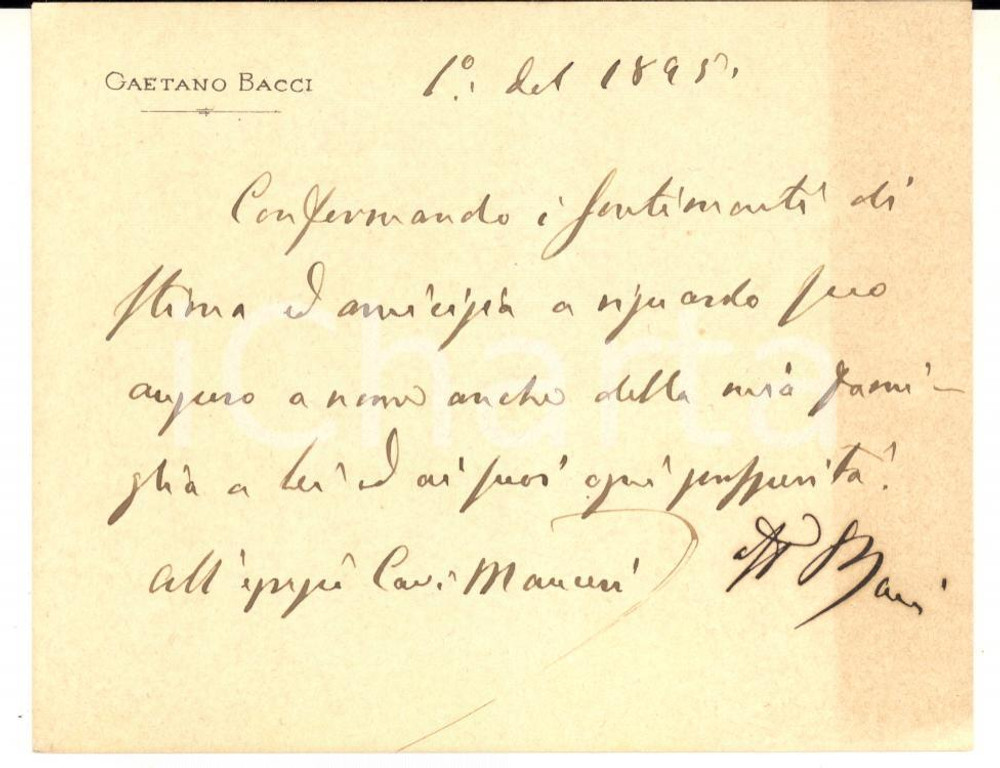 GAETANO BACCI
1º. del 1895.
Confermando i sentimenti di
stima ed amicizia a riguardo suo
auguro a nome anche della mia fami-
glia a Lei ed ai suoi ogni prosperità.
All' Cav. Mancini
Aff Bacci
iCharta